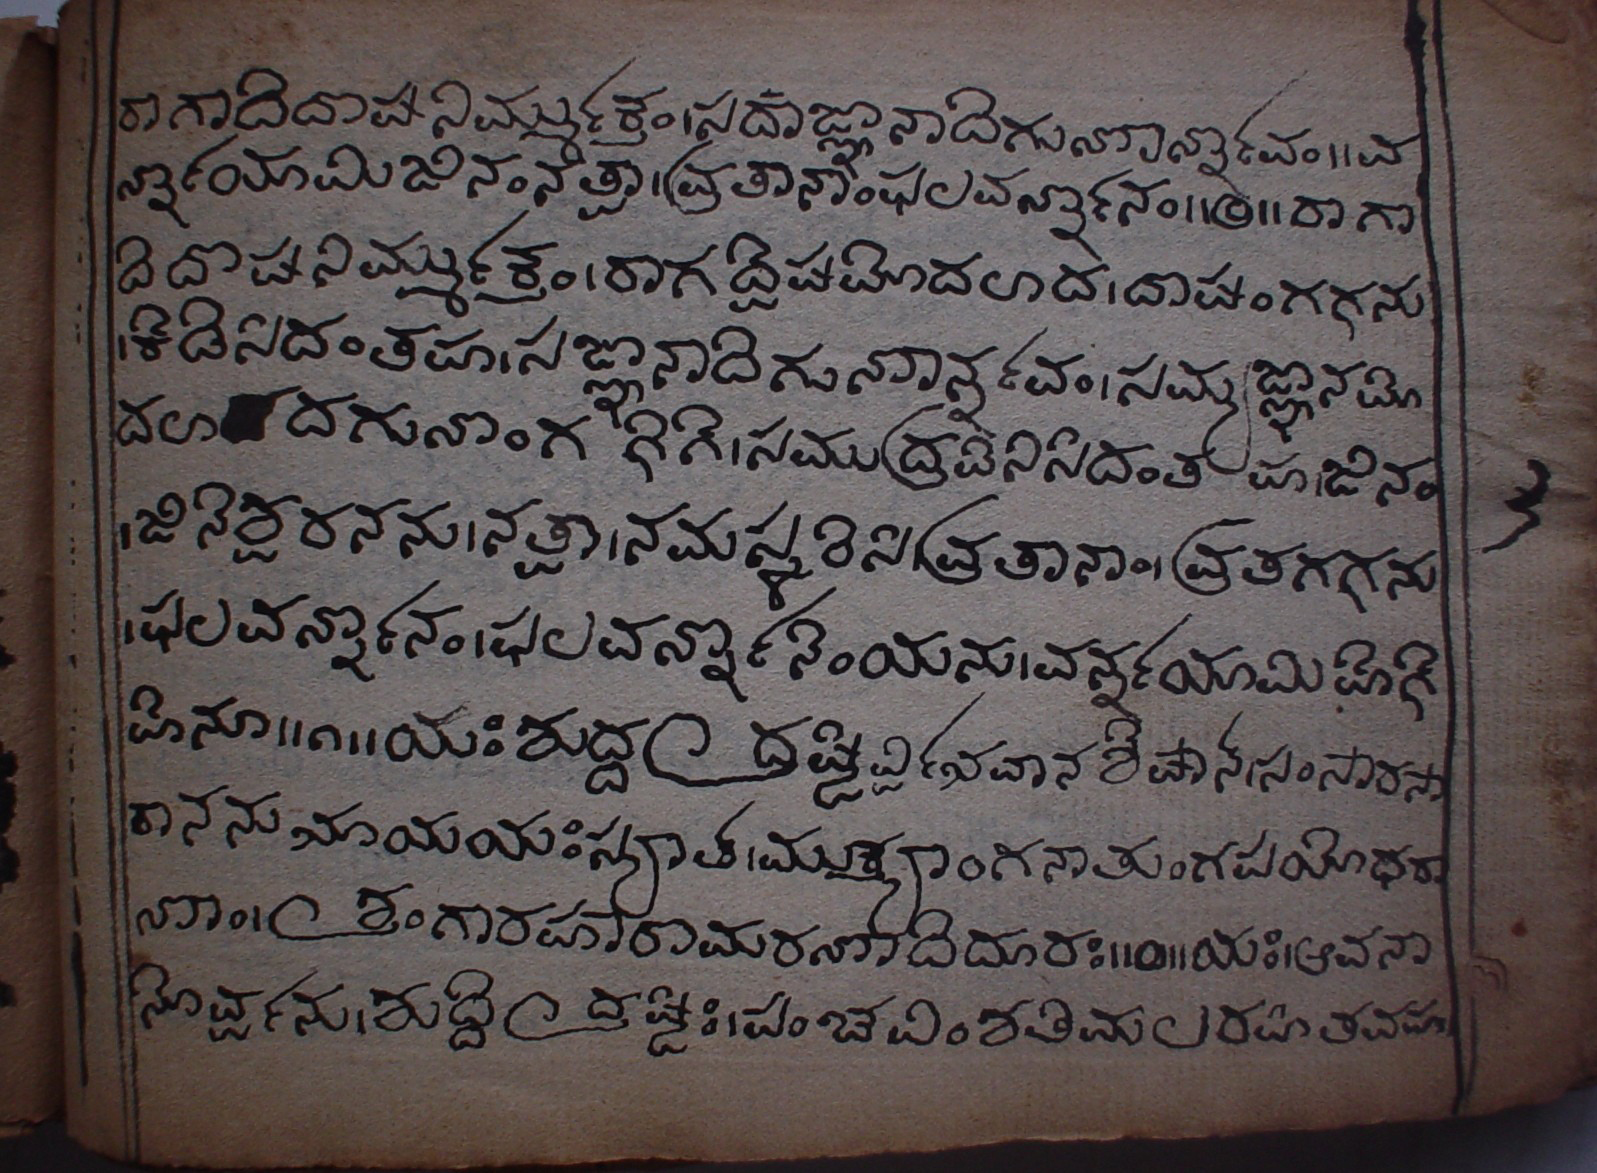 ರಾಗಾದಿದೊಷನಿರ್ಮ್ಮುಕ್ತಂ।ಸದಾಜ್ಞಾನಾದಿಗುಣಾರ್ನ್ನವಂ॥ವ
ರ್ನ್ನಯಾಮಿಜಿನಂನತ್ವಾ।ವ್ರತಾನಾಂಫಲವರ್ನ್ನನಂ॥೧॥ರಾಗಾ
ದಿದೊಷನಿರ್ಮ್ಮುಕ್ತಂ।ರಾಗದ್ವೆಷಮೊದಲಾದ।ದೊಷಂಗಳನು
।ಕೆಡಿಸಿದಂತಹಾ।ಸಜ್ಞಾನಾದಿಗುಣಾರ್ನ್ನವಂ।ಸಮ್ಯಜ್ಞಾನಮೊ
ದಲಾದಗುಣಂಗಳಿಗೆ।ಸಮುದ್ರವೆನಿಸಿದಂತಹಾ।ಜಿನಂ
।ಜಿನೆಶ್ವರನನು।ನತ್ವಾ।ನಮಸ್ಕರಿಸಿ।ವ್ರತಾನಾಂ।ವ್ರತಗಳನು
।ಫಲವರ್ನ್ನನಂ।ಫಲವರ್ನ್ನನೆಯನು।ವರ್ನ್ನಯಾಮಿಹೆಳಿ
ಹೆನೂ॥೧॥ಯಃಶುದ್ಧದ್ರಷ್ಟಿರ್ವ್ವಿಭವಾನಶೆಷಾನ್।ಸಂಸಾರಸಾ
ರಾನನುಭೂಯಯಃಸ್ಯಾತ್।ಮುಕ್ತ್ಯಾಂಗನಾತುಂಗಪಯೊಧರಾ
ಣಾಂ।ಶ್ರಂಗಾರಹಾರಾಮರಣಾದಿದೂರಃ॥೨॥ಯಃ।ಆವನಾ
ನೊರ್ವ್ವನು।ಶುದ್ಧದ್ರಷ್ಟಿಃ।ಪಂಚವಿಂಶತಿಮಲರಹಿತವಹಾ